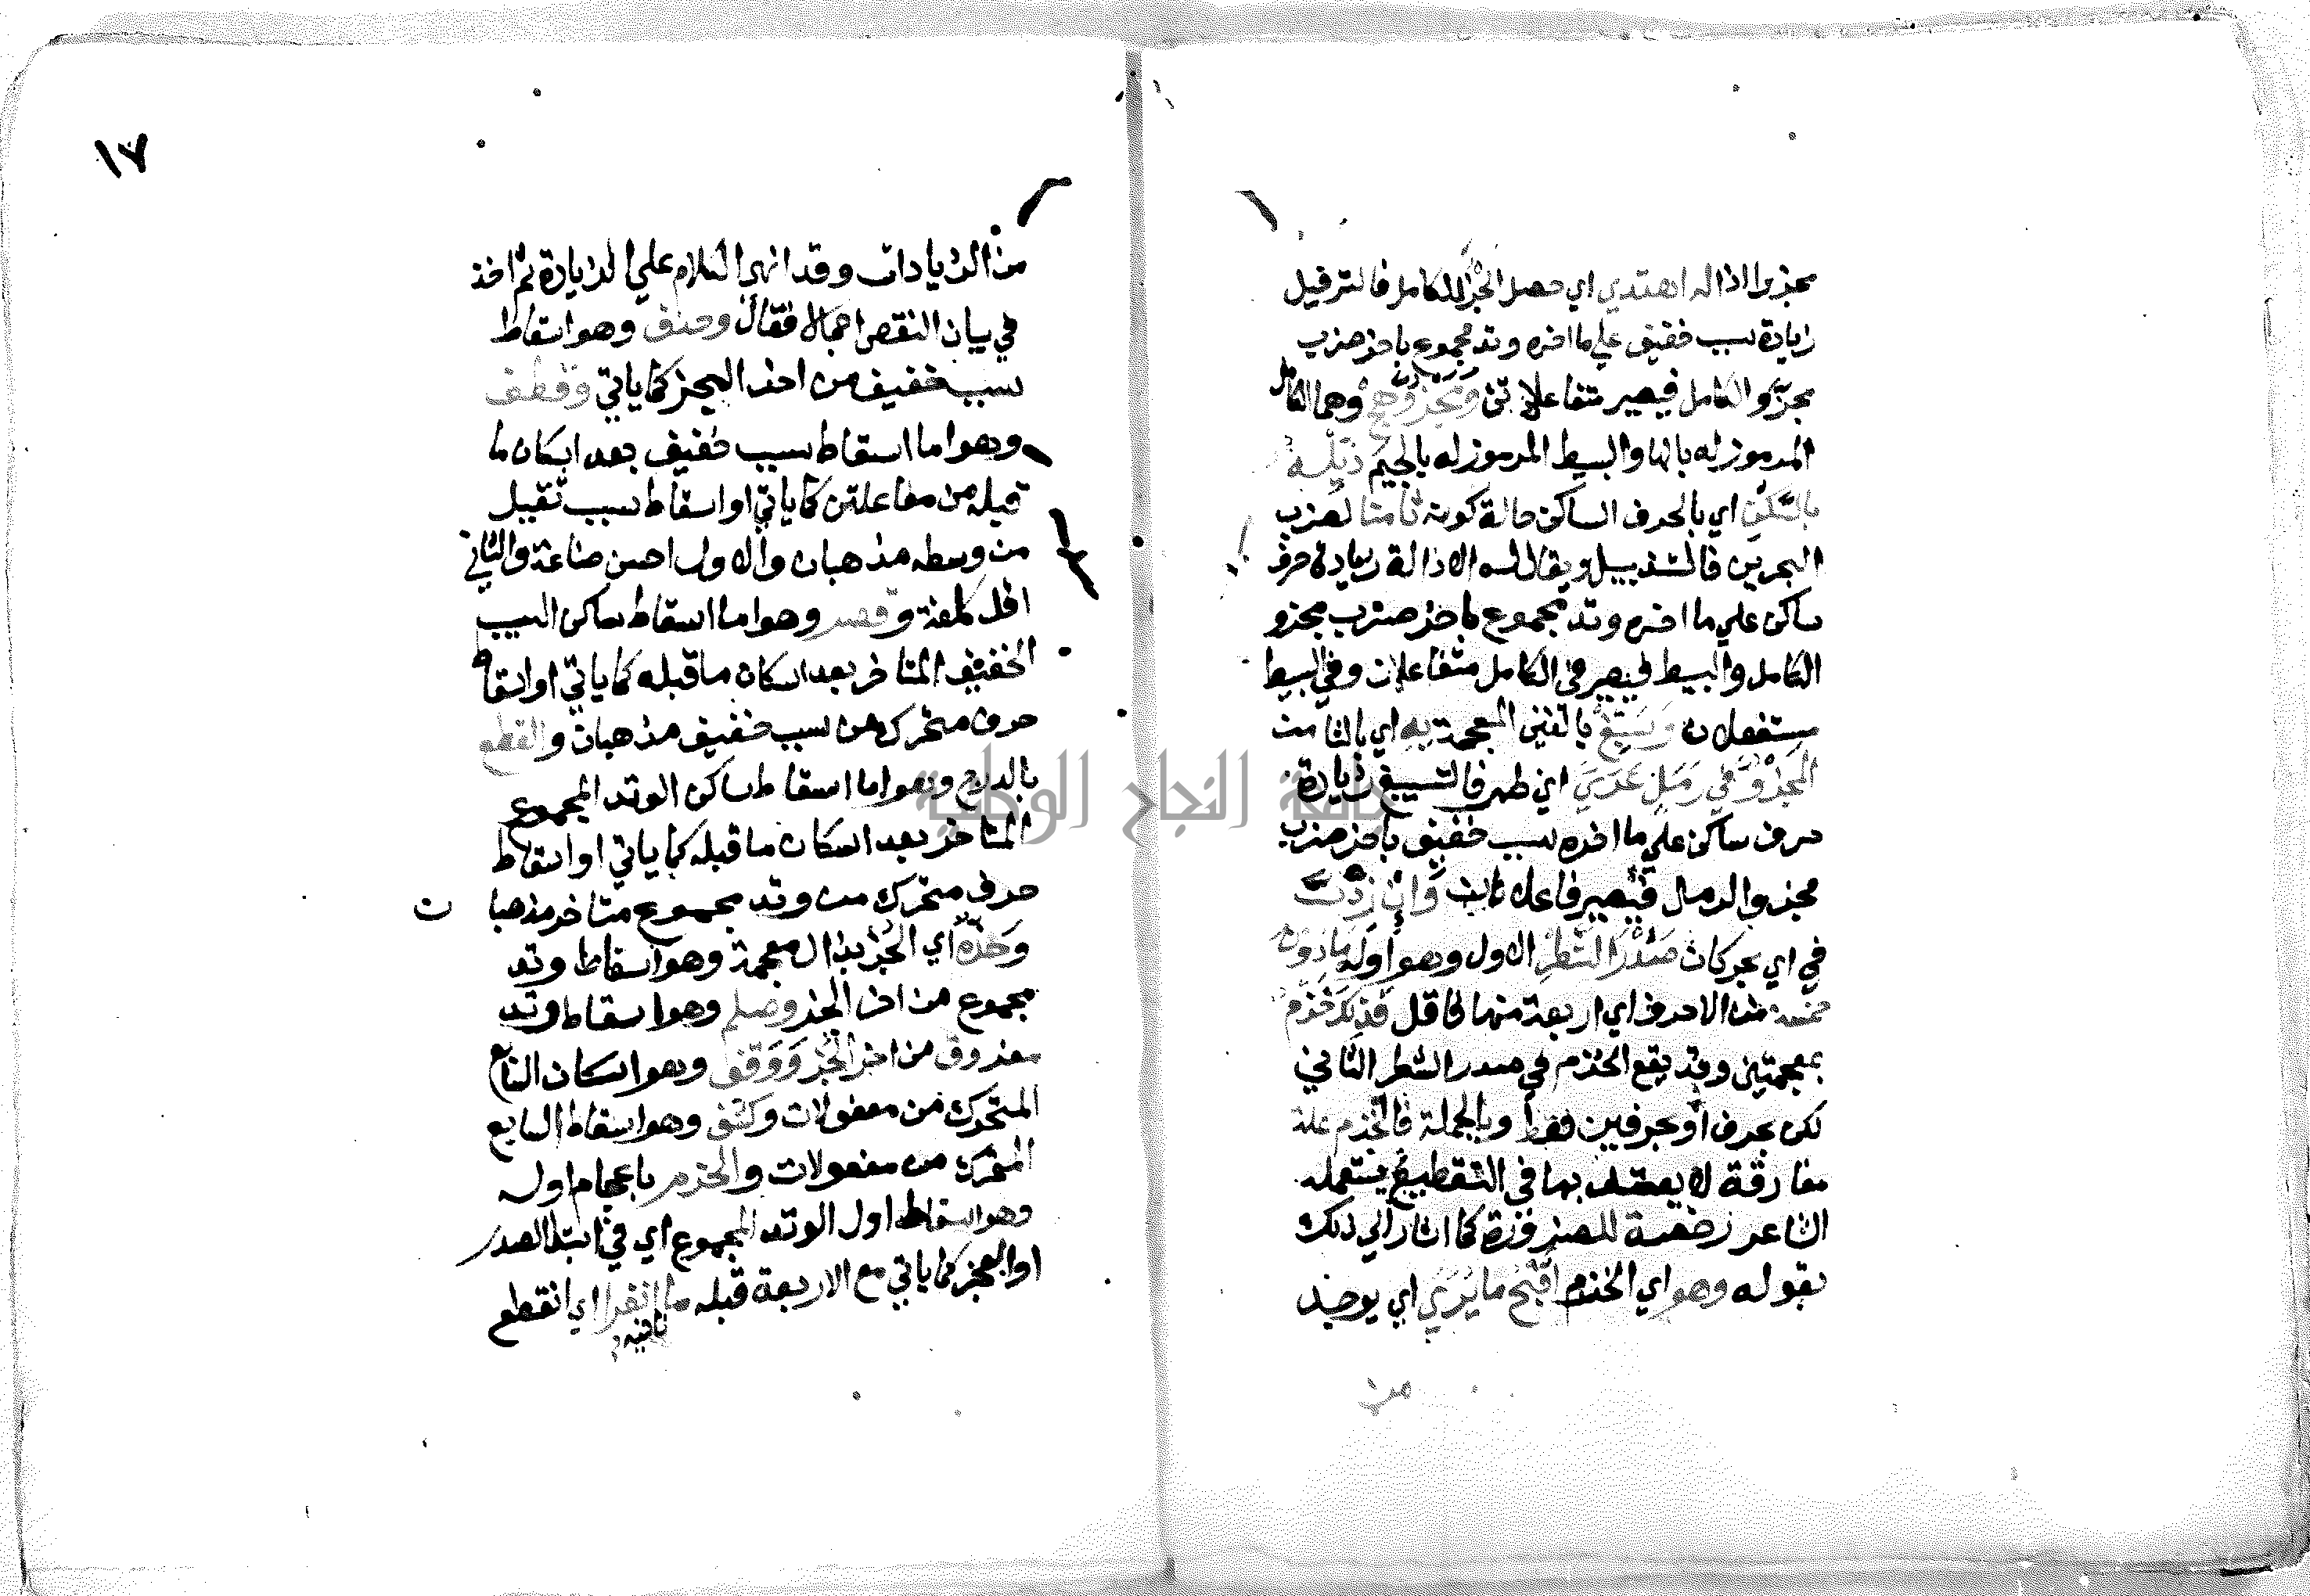 مجزوا اذا له اهتدي اي حصل الجزء الكامل فالترفيل
زيادة سبب خفيف علي ما اخره وتد مجموع باخر ضرب
مجزو الكامل فيصير متفاعلاتن ومجزوهج وهما الكامل
المرموز له بالها والبسيط المرموز له بالجيم ذيله
بالسكن اي بالحرف الساكن حالة كونه ثامنا لضرب
البحرين فالتذييل ويقال له الاذالة زيادة حرف
ساكن علي ما اخره وتد مجموع باخر ضرب مجزو
الكامل والبسيط فيصير في الكامل متفاعلان وفي البسيط
مستفعلان وسبغ بالغين المعجمة به اي بالثامن
المجزو في رمل عري اي ظهر فالتسبيغ زيادة
حرف ساكن علي ما اخره سبب خفيف باخر ضرب
مجزو الرمل فيصير فاعلاتان وان زدت
في اي بحر كان صدر الشطر الاول وهو اوله ما دون
خمسة من الاحرف اي اربعة منها فاقل فذلك خزم
بمعجمتين وقد يقع الخزم في صدر الشطر الثاني
لكن بحرف او بحرفين فقط وبالجملة فالخزم علة
مفارقة لا يعتد بها في التقطيع يستعمله
الشاعر رخصة للضرورة كما اشار الي ذلك
بقوله وهو اي الخزم اقبح ما يري اي يوجد
من
١٧
من الزيادات وقد انهي الكلام علي الزيادة ثم اخذ
في بيان النقص اجمالا فقال وحذف وهو اسقاط
سبب خفيف من اخر الجز كما ياتي وقطف
وهو اما اسقاط سبب خفيف بعد اسكان ما
قبله من مفاعلتن كما ياتي او اسقاط سبب ثقيل
من وسطه مذهبان والاول احسن صناعة والثاني
اقل كلفة وقصر وهو اما اسقاط ساكن السبب
الخفيف المتاخر بعد اسكان ما قبله كما ياتي او اسقاط
حرف متحرك من سبب خفيف مذهبان والقطع
بالدرج وهو اما اسقاط ساكن الوتد المجموع
المتاخر بعد اسكان ما قبله كما ياتي او اسقاط
حرف متحرك من وتد مجموع متاخر مذهبا ن
وحذه اي الجز بذال معجمة وهو اسقاط وتد
مجموع من اخر الجز وصلم وهو اسقاط وتد
مفروق من اخر الجز ووقف وهو اسكان التابع
المتحرك من مفعولات وكشف وهو اسقاط السابع
المتحرك من مفعولات والخرم باعجام اوله
وهو اسقاط اول الوتد المجموع اي في ابتدا الصدر
او العجز كما ياتي مع الاربعة قبله ما انفرا اي انقطع
نافيه